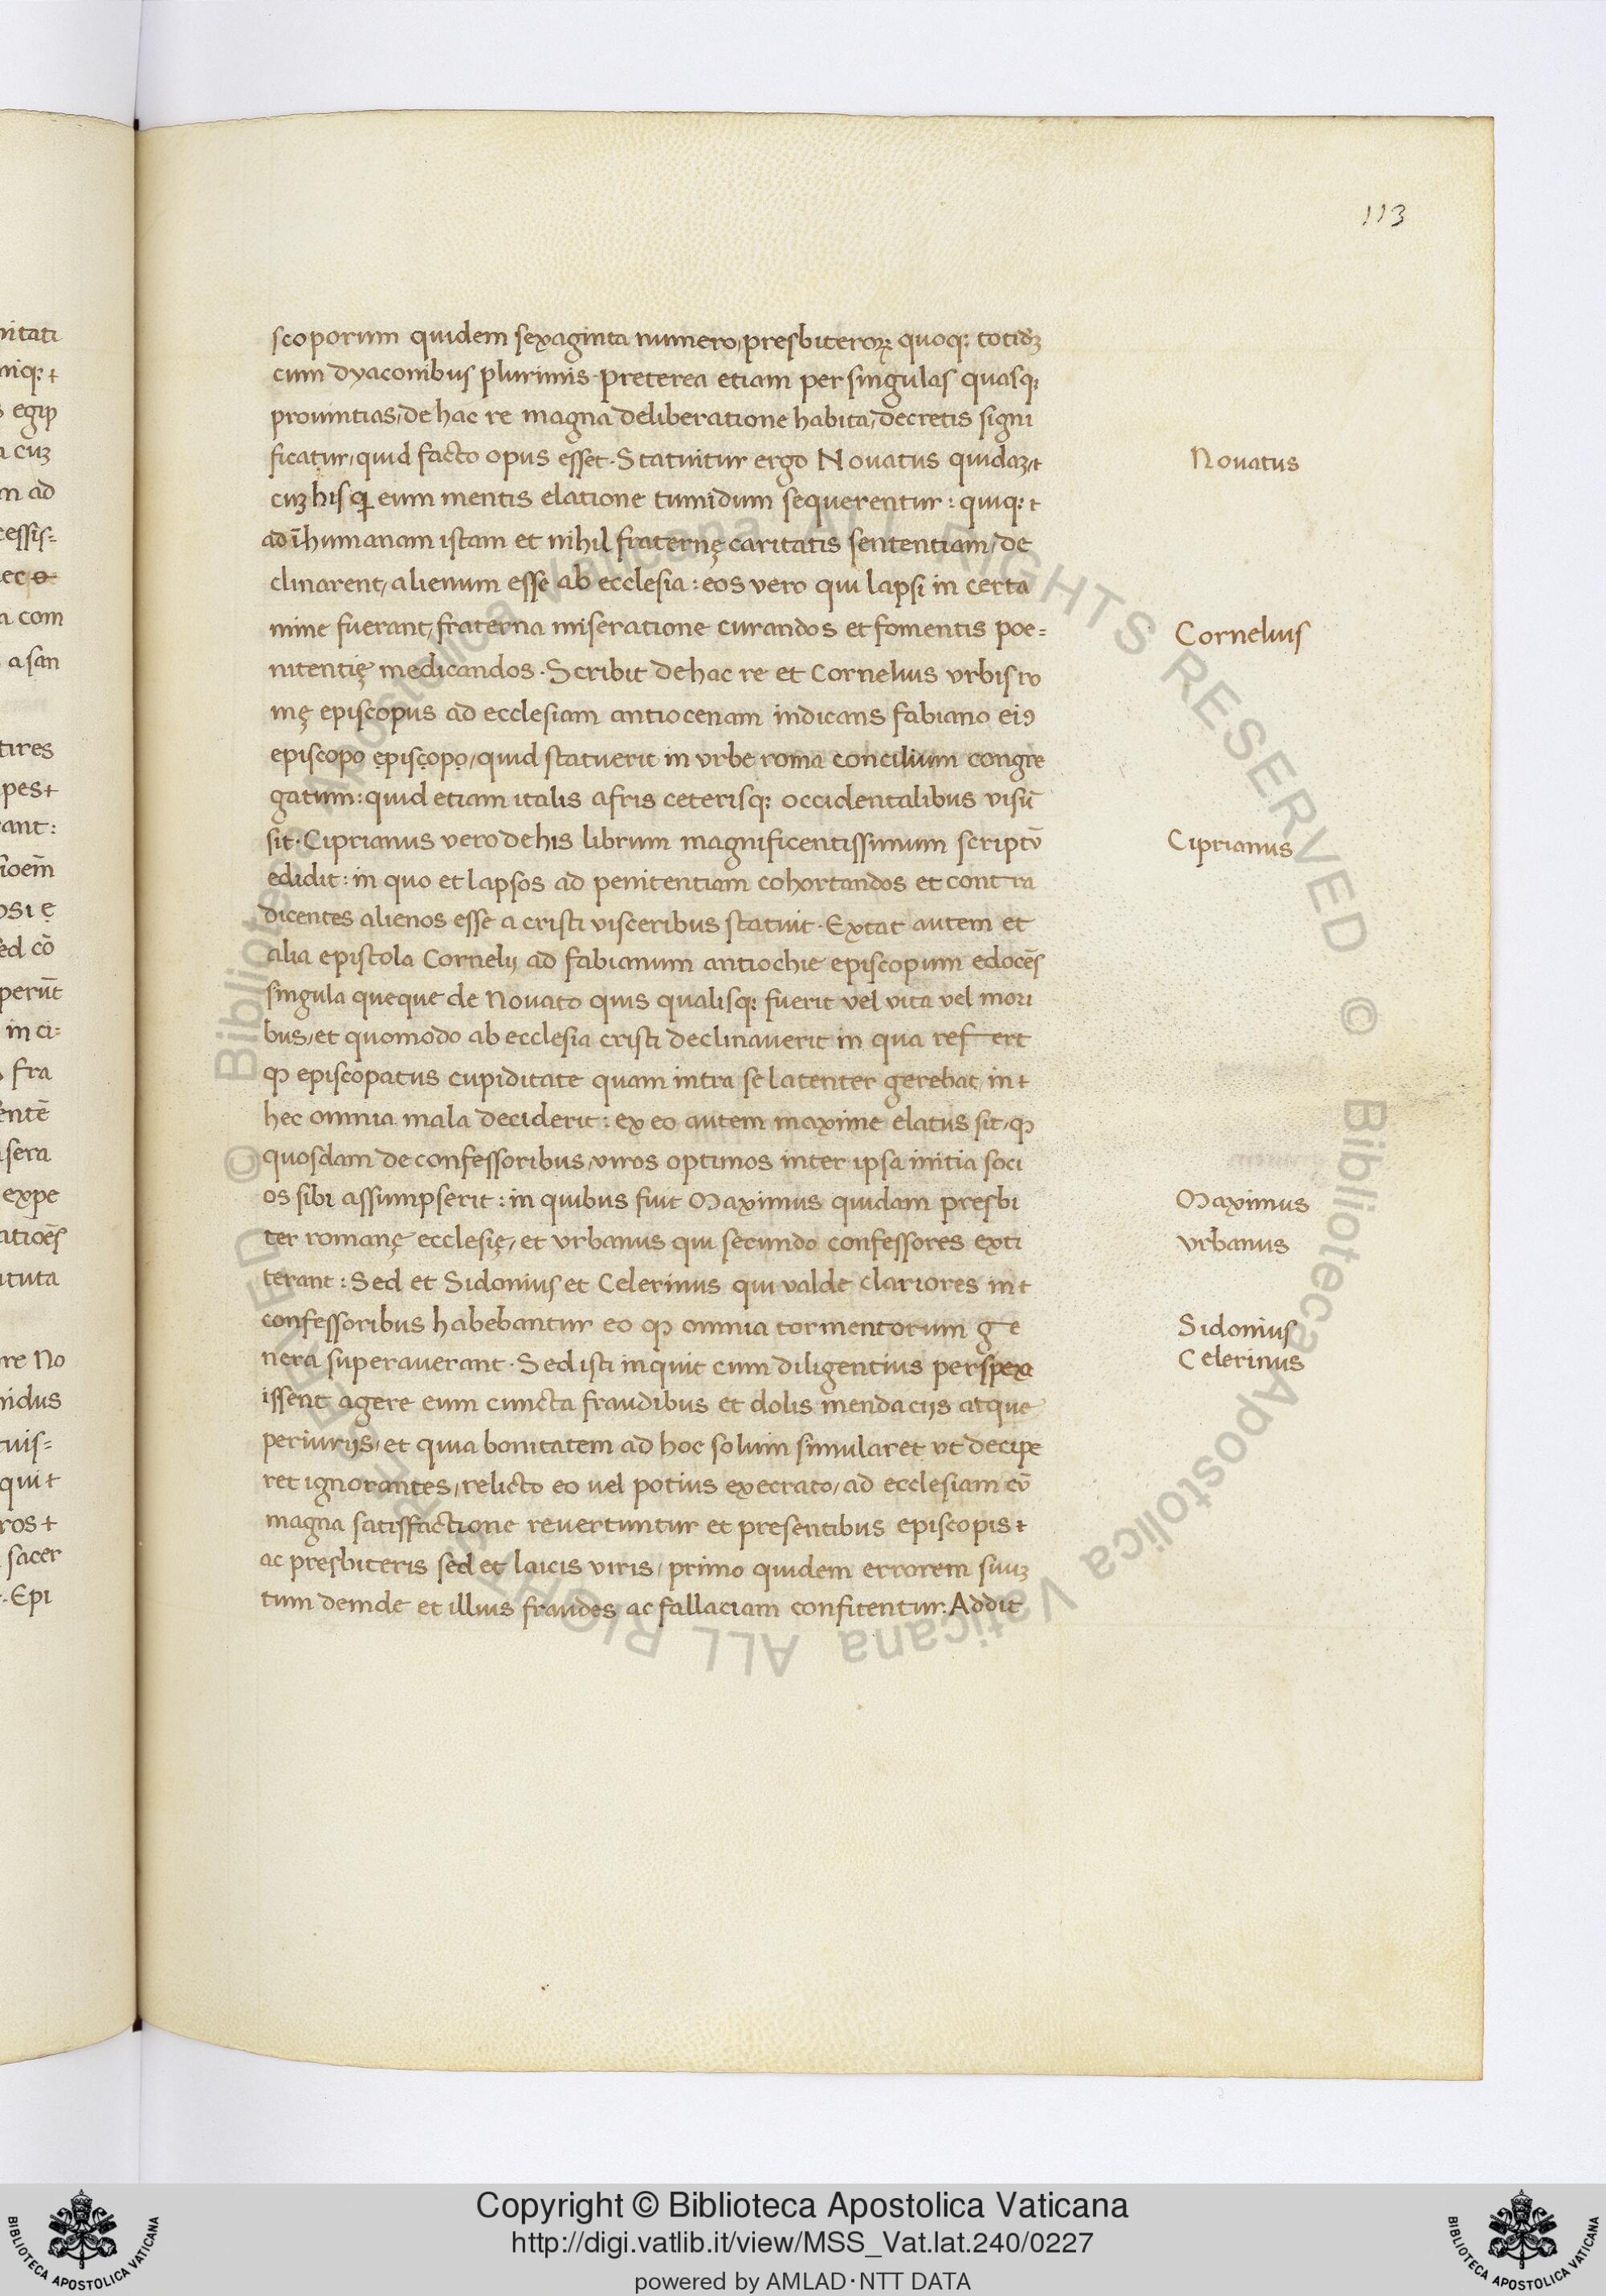 113
scoporum quidem sexaginta numero, presbiteroꝝ quoqꝫ totidꝫ
cum dyaconibus plurimis. preterea etiam per singulas quasqꝫ
prouintias, de hac re magna deliberatione habita, decretis signi
ficatur, quid facto opus esset. Statuitur ergo Nouatus quidaꝫ,
cuꝫ his qi eum mentis elatione tumidum sequerentur: quiqꝫ
ad īhumanam istam et nihil fraternę caritatis sententiam, de
clinarent, alienum esse ab ecclesia: eos vero qui lapsi in certa
mine fuerant, fraterna miseratione curandos et fomentis poe=
nitentię medicandos. Scribit de hac re et Cornelius vrbis ro
mę episcopus ad ecclesiam antiocenam indicans fabiano eiꝰ
episcopo episcopo, quid statuerit in vrbe roma concilium congre
gatum: quid etiam italis afris ceterisqꝫ occidentalibus visū
sit. Ciprianus vero de his librum magnificentissimum scriptū
edidit: in quo et lapsos ad penitentiam cohortandos et contra
dicentes alienos esse a cristi visceribus statuit. Extat autem et
alia epistola Cornelij ad fabianum antiochie episcopum edocēs
singula queque de Nouato quis qualisqꝫ fuerit vel vita vel mori
bus, et quomodo ab ecclesia cristi declinauerit in qua refert
ꝙ episcopatus cupiditate quam intra se latenter gerebat, in
hec omnia mala deciderit: ex eo autem maxime elatus sit, ꝙ
quosdam de confessoribus, viros optimos inter ipsa initia soci
os sibi assumpserit: in quibus fuit Maximus quidam presbi
ter romanę ecclesię, et vrbanus qui secundo confessores exti
terant: Sed et Sidonius et Celerinus qui valde clariores in
confessoribus habebantur eo ꝙ omnia tormentorum ge
nera superauerant. Sed isti inquit cum diligentius perspexa
issent agere eum cuncta fraudibus et dolis mendacijs atque
periurijs, et quia bonitatem ad hoc solum simularet vt decipe
ret ignorantes, relicto eo uel potius execrato, ad ecclesiam cū
magna satisfactione reuertuntur et presentibus episcopis
ac presbiteris sed et laicis viris, primo quidem errorem suuꝫ
tum deinde et illius fraudes ac fallaciam confitentur. Addit
Nouatus
Cornelius
Ciprianus
Maximus
vrbanus
Sidonius
Celerinus
Copyright © Biblioteca Apostolica Vaticana
http://digi.vatlib.it/view/MSS_Vat.lat.240/0227
powered by AMLAD·NTT DATA